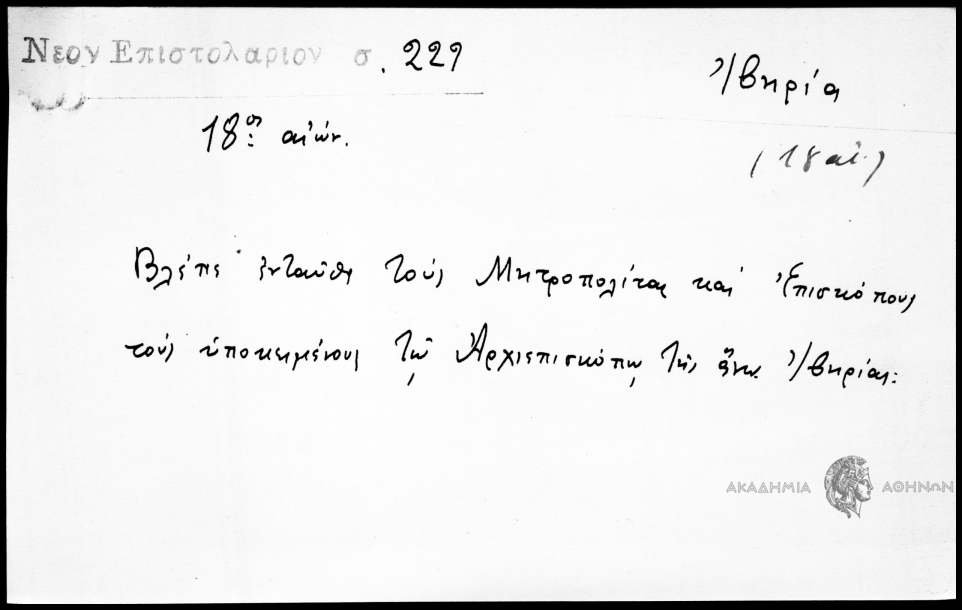 Νεον Επιστολαριον σ. 229
Ἰβηρία
18ος αἰών.
(18 αἰ.)
Βλέπε ἐνταῦθα τοὺς Μητροπολίτας καὶ Ἐπισκόπους
τοὺς ὑποκειμένους τῷ Ἀρχιεπισκόπῳ τῆς ἄνω Ἰβηρίας:
ΑΚΑΔΗΜΙΑ ΑΘΗΝΩΝ